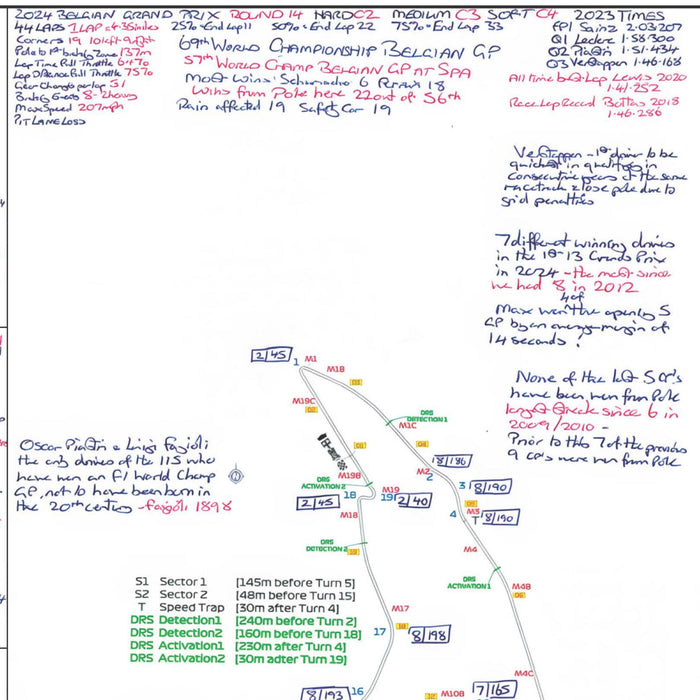 2024 BELGIAN GRAND PRIX ROUND 14 HARD C2 MEDIUM C3 SOFT C4 2023 TIMES
44 LAPS 1 LAP = 4.35 miles 25% = End Lap 11 50% = End Lap 22 75% = End Lap 33
Corners 19 10 left 9 right
Pole to 1st braking Zone 137m
Lap Time Full Throttle 64%
Lap Distance Full Throttle 75%
Gear Changes per lap 51
Braking Events 8 - 2 heavy
Max Speed 207mph
PIT LANE LOSS
69th WORLD CHAMPIONSHIP BELGIAN GP
57th WORLD CHAMP BELGIAN GP AT SPA
Most Wins: Schumacher 6
Wins from Pole here 22 out of 56
Rain affected 19 Safety Car 19
FP1 Sainz 2:03.207
Q1 Leclerc 1:58.300
Q2 Piastri 1:51.434
Q3 Verstappen 1:46.168
All Time best Lap Lewis 2020
1:41.252
Race Lap Record Bottas 2018
1:46.286
Verstappen - 1st driver to be
quickest in qualifying in
consecutive years at the same
racetrack & lose pole due to
grid penalties
7 different winning drivers
in the 1st 13 Grands Prix
in 2024 - the most since
we had 8 in 2012
Max won the opening 4 of 5
GP by an average margin of
14 seconds!
None of the last 5 GP's
have been won from Pole
longest streak since 6 in
2009/2010 -
Prior to this 7 of the previous
9 GP's were won from Pole
Oscar Piastri & Luigi Fagioli
the only drivers of the 115 who
have won an F1 World Champ
GP, not to have been born in
the 20th century - Fagioli 1898
2/45 1 M1
M18
D1
M19C
D2
DRS
DETECTION 1
M1C
D1
M19B
DRS
ACTIVATION 2
M2
2
8/186
3 8/190
M3
4 T 8/190
M19
18 19 2/40
2/45
M18
M4
DRS
DETECTION 2
DRS
ACTIVATION 1
M4B
S1 Sector 1 [145m before Turn 5]
S2 Sector 2 [48m before Turn 15]
T Speed Trap [30m after Turn 4]
DRS Detection1 [240m before Turn 2]
DRS Detection2 [160m before Turn 18]
DRS Activation1 [230m after Turn 4]
DRS Activation2 [30m adter Turn 19]
M17
17 8/198
M4C
8/193 16
M10B
7/165